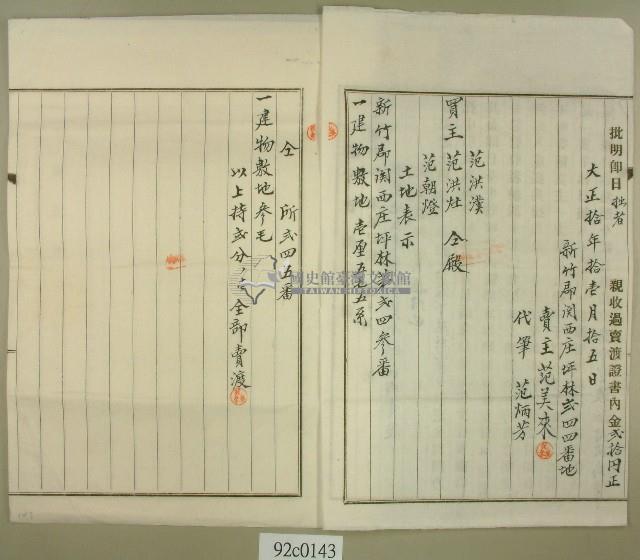 批明即日批者 親收過賣渡證書內金貳拾円正
大正拾年拾壱月拾五日
新竹郡関西庄坪林貳四四番地
賣主 范美來
代筆 范炳芳
范洪漢
買主 范洪灶 仝殿
范朝燈
土地表示
新竹郡関西庄坪林貳四參番
一建物敷地 壱厘五毛五系
仝 所貳四五番
一建物敷地參毛
以上持貳分ノ壱全部賣渡
國史館臺灣文獻館
TAIWAN HISTORICA
92c0143